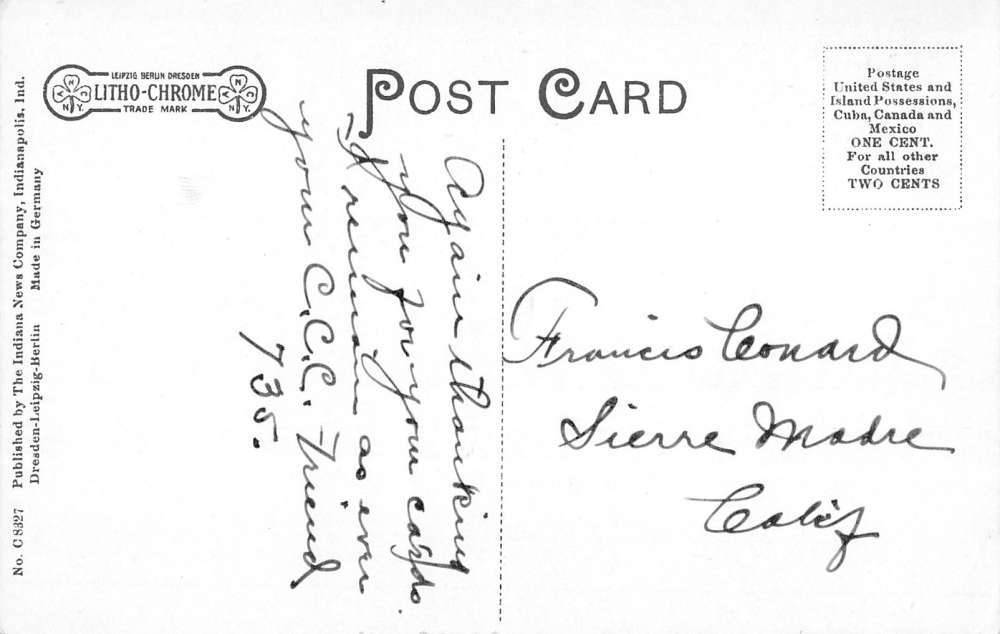 LEIPZIG BERLIN DRESDEN
LITHO-CHROME
TRADE MARK
A N C N.Y.
A N C N.Y.
POST CARD
Postage
United States and
Island Possessions,
Cuba, Canada and
Mexico
ONE CENT.
For all other
Countries
TWO CENTS
No. C8327 Published by The Indiana News Company, Indianapolis, Ind.
Dresden-Leipzig-Berlin Made in Germany
Again thanking
you for your cards.
I remain as ever
your C.C.C. Friend
735.
Francis Conard
Sierre Madre
Calif